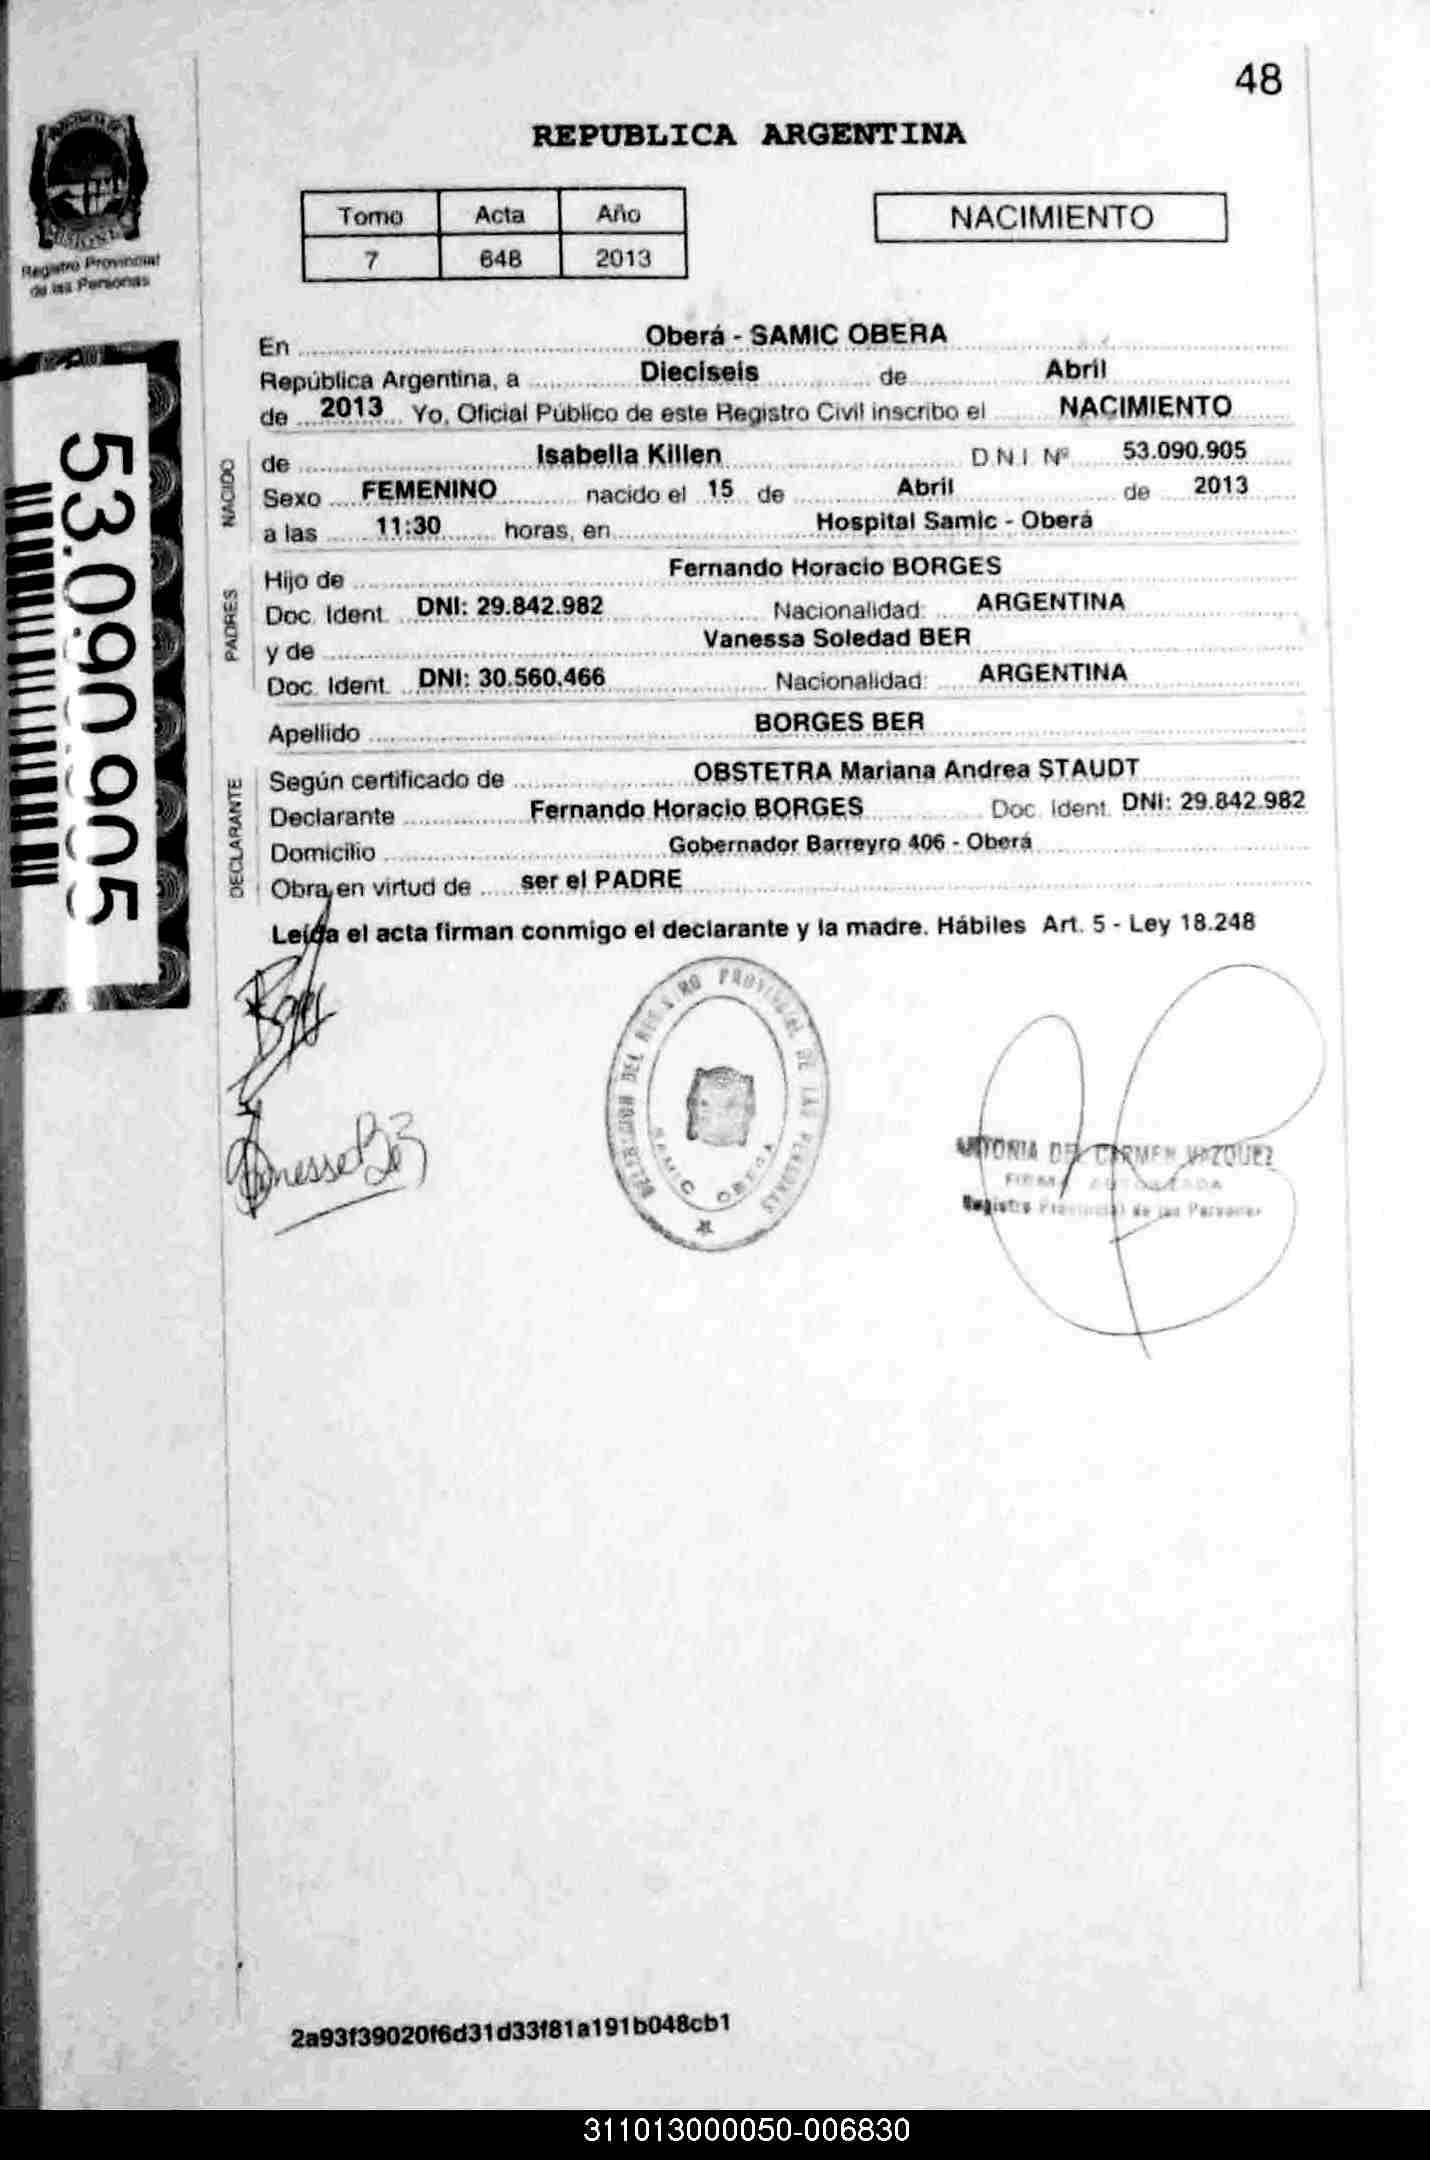 48
REPUBLICA ARGENTINA
Tomo Acta Año
7 648 2013
NACIMIENTO
Registro Provincial
de las Personas
53.090.905
En Oberá - SAMIC OBERA
República Argentina, a Dieciseis de Abril
de 2013 Yo, Oficial Público de este Registro Civil inscribo el NACIMIENTO
NACIDO
de Isabella Killen D N I Nº 53.090.905
Sexo FEMENINO nacido el 15 de Abril de 2013
a las 11:30 horas, en Hospital Samic - Oberá
PADRES
Hijo de Fernando Horacio BORGES
Doc. Ident. DNI: 29.842.982 Nacionalidad: ARGENTINA
y de Vanessa Soledad BER
Doc. Ident. DNI: 30.560.466 Nacionalidad: ARGENTINA
Apellido BORGES BER
DECLARANTE
Según certificado de OBSTETRA Mariana Andrea STAUDT
Declarante Fernando Horacio BORGES Doc. Ident. DNI: 29.842.982
Domicilio Gobernador Barreyro 406 - Oberá
Obra en virtud de ser el PADRE
Leída el acta firman conmigo el declarante y la madre. Hábiles Art. 5 - Ley 18.248
DELEGACION DEL REGISTRO PROVINCIAL DE LAS PERSONAS
SAMIC OBERA
ANTONIA DEL CARMEN VAZQUEZ
FIRMA AUTORIZADA
Registro Provincial de las Personas
2a93f39020f6d31d33f81a191b048cb1
311013000050-006830